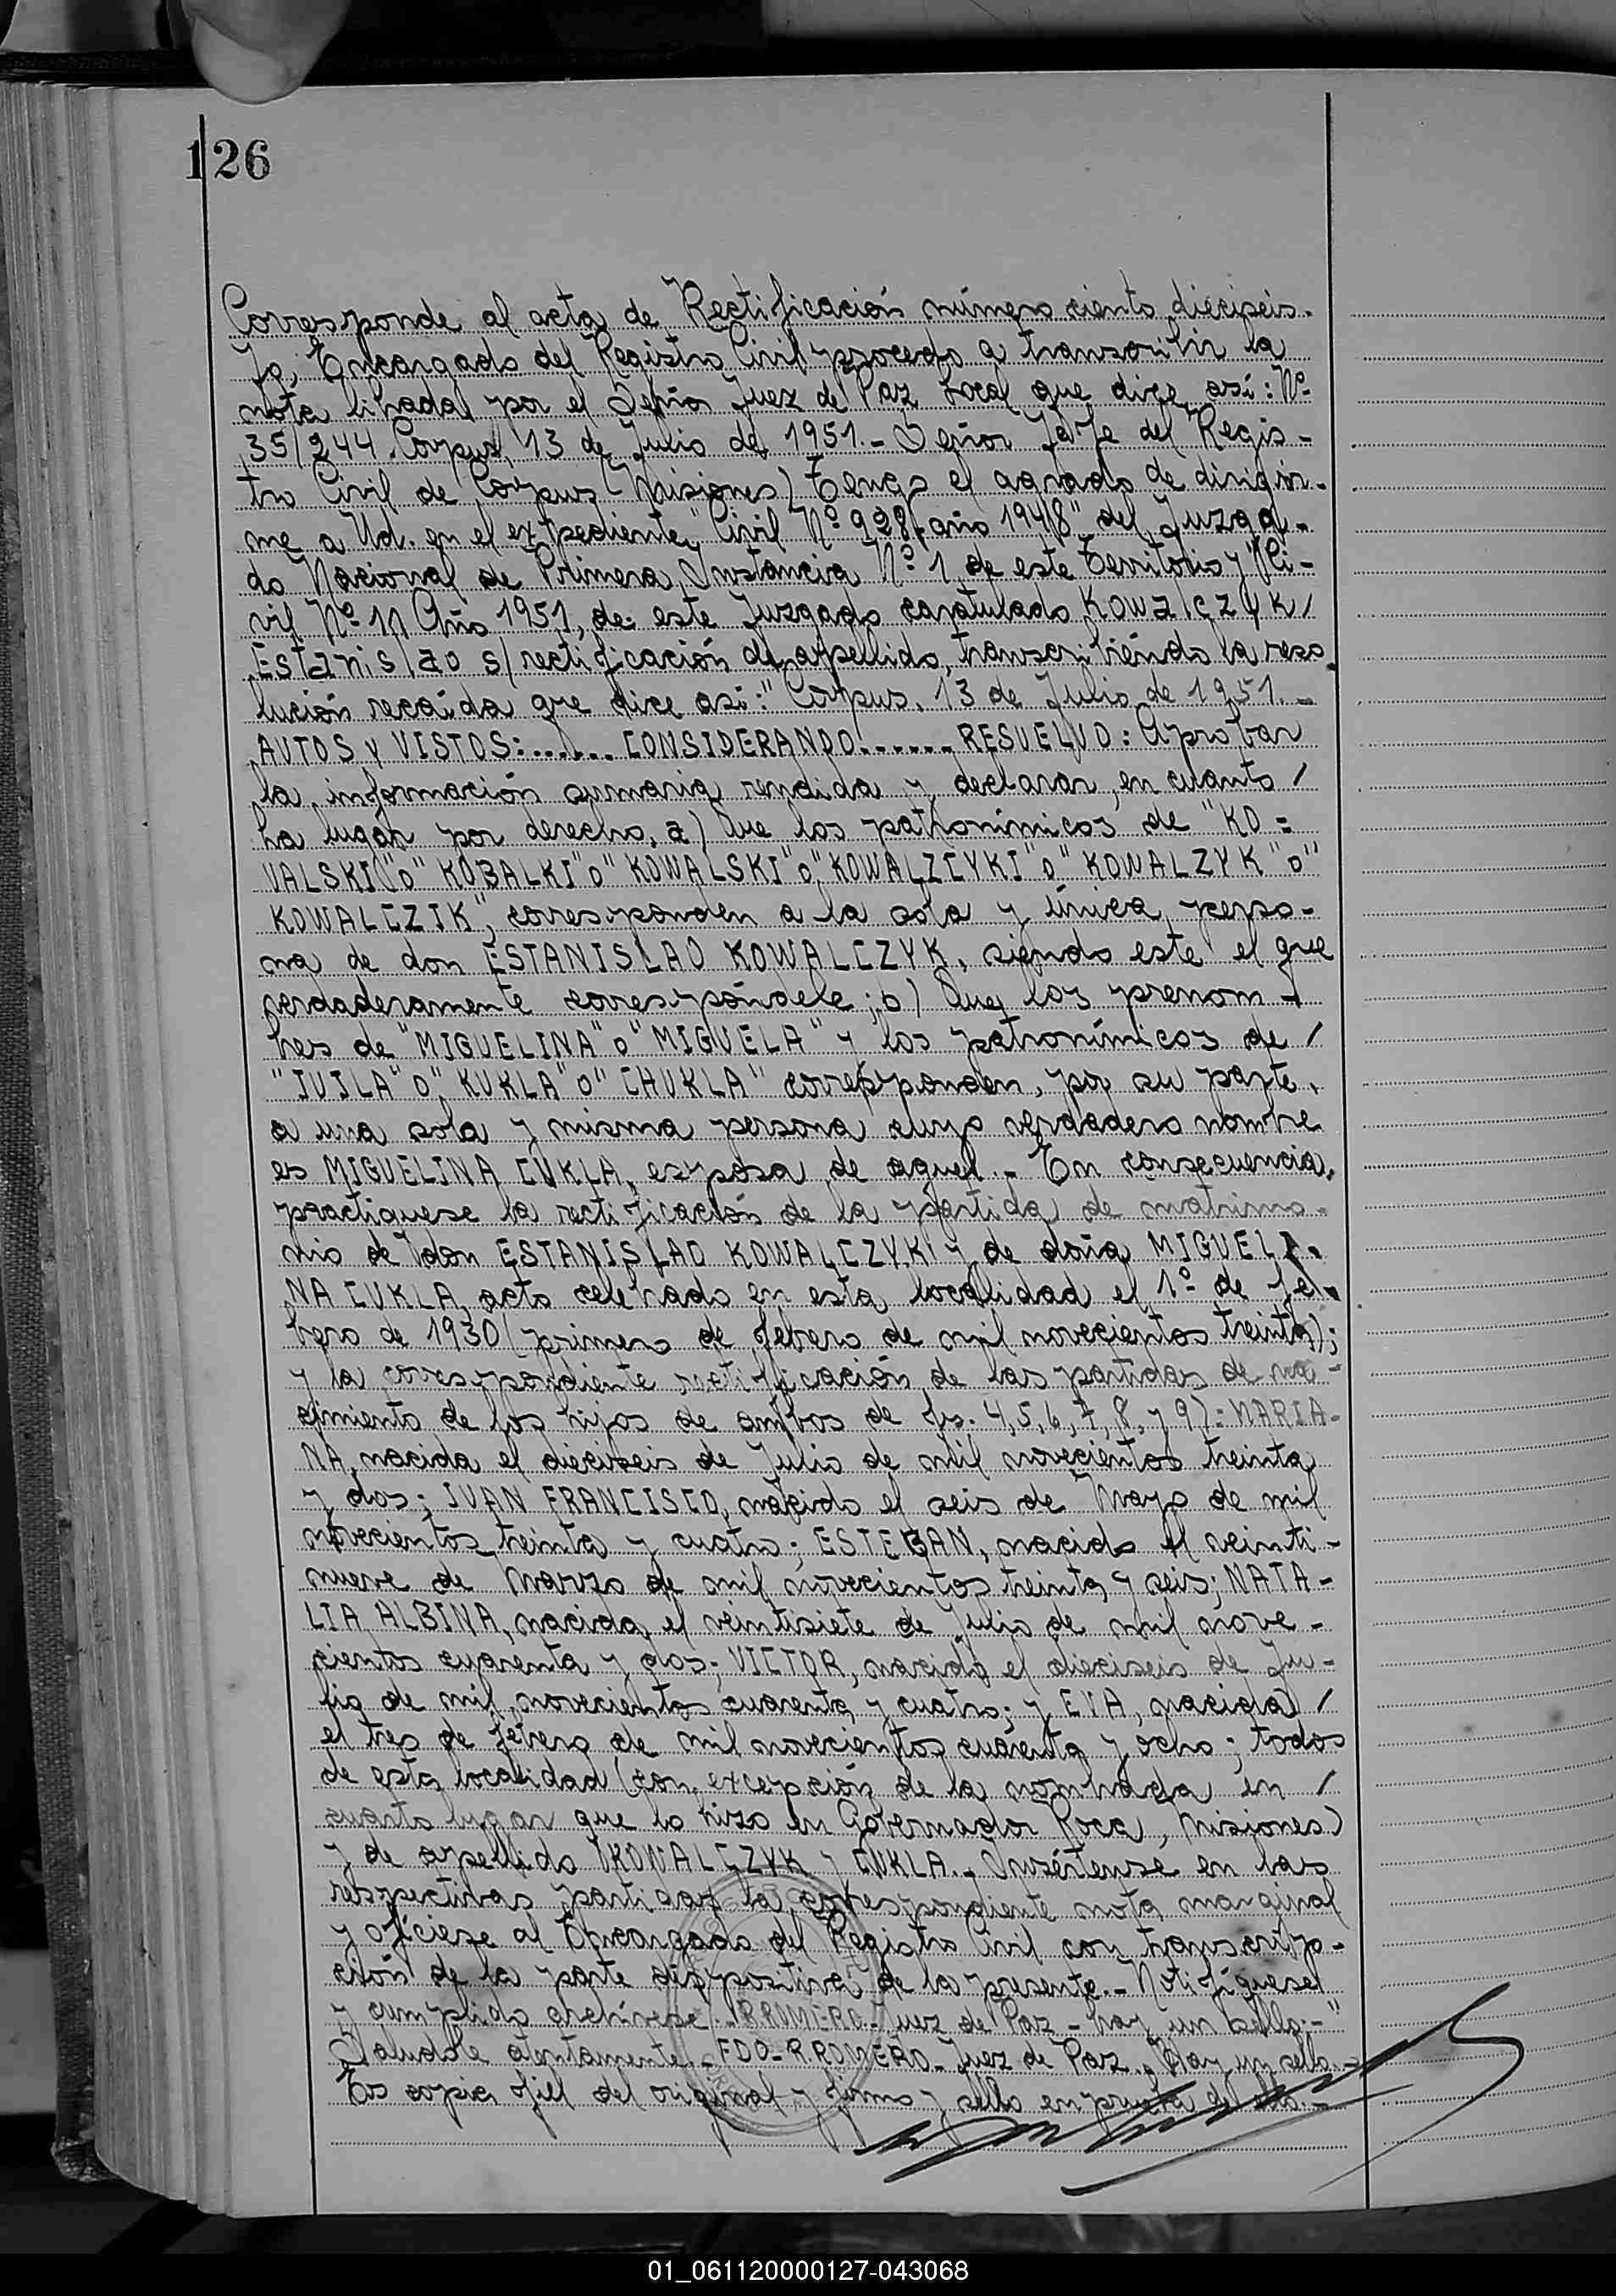 126
Corresponde al acta de Rectificación número ciento dieciseis.
Yo, Encargado del Registro Civil procedo a transcribir la
nota librada por el Señor Juez de Paz local que dice así: Nº
35/244. Corpus, 13 de Julio de 1951.- Señor Jefe del Regis-
tro Civil de Corpus (Misiones) Tengo el agrado de dirigir-
me a Ud. en el expediente "Civil Nº 928, año 1948" del Juzga-
do Nacional de Primera Instancia Nº 1 de este Territorio y "Ci-
vil Nº 11 Año 1951, de este Juzgado caratulado KOWALCZYK/
Estanislao s/rectificación de apellido, transcribiendo la reso
lución recaída que dice así: "Corpus, 13 de Julio de 1951.-
AUTOS y VISTOS:...... CONSIDERANDO...... RESUELVO: Aprobar
la información sumaria rendida y declarar, en cuanto /
ha lugar por derecho, a) Que los patronímicos de "KO=
VALSKI" o "KOBALKI" o "KOWALSKI" o "KOWALZCYKI" o "KOWALZYK" o "
KOWALCZIK", corresponden a la sola y única perso-
na de don ESTANISLAO KOWALCZYK, siendo este el que
verdaderamente correspóndele; b) Que los prenom-
bres de "MIGUELINA" o "MIGUELA" y los patronímicos de /
"IUILA" o "KUKLA" o "CHUKLA" corresponden, por su parte,
a una sola y misma persona cuyo verdadero nombre
es MIGUELINA CUKLA, esposa de aquel.- En consecuencia,
practiquese la rectificación de la partida de matrimo-
nio de don ESTANISLAO KOWALCZYK y de doña MIGUELI-
NA CUKLA, acto celebrado en esta localidad el 1º de fe-
brero de 1930 (primero de febrero de mil novecientos treinta);
y la correspondiente rectificación de las partidas de na-
cimiento de los hijos de ambos de fs. 4, 5, 6, 7, 8, y 9): MARIA-
NA, nacida el dieciseis de Julio de mil novecientos treinta
y dos; JUAN FRANCISCO, nacido el seis de Mayo de mil
novecientos treinta y cuatro; ESTEBAN, nacido el veinti-
nueve de Marzo de mil novecientos treinta y seis; NATA-
LIA ALBINA, nacida el veintisiete de Julio de mil nove-
cientos cuarenta y dos; VICTOR, nacido el dieciseis de Ju-
lio de mil novecientos cuarenta y cuatro; y EVA, nacida /
el tres de febrero de mil novecientos cuarenta y ocho; todos
de esta localidad (con excepción de la nombrada en /
cuarto lugar que lo hizo en Gobernador Roca, Misiones)
y de apellido KOWALCZYK y CUKLA.- Insértense en las
respectivas partidas la correspondiente nota marginal
y ofíciese al Encargado del Registro Civil con transcrip-
ción de la parte dispositiva de la presente.- Notifíquese
y cumplido archívese.- R.ROMERO-Juez de Paz- hay un sello.-"
Salúdole atentamente.- FDO-R.ROMERO-Juez de Paz. Hay un sello.-
Es copia fiel del original y firmo y sello en prueba de ello.-
01_061120000127-043068